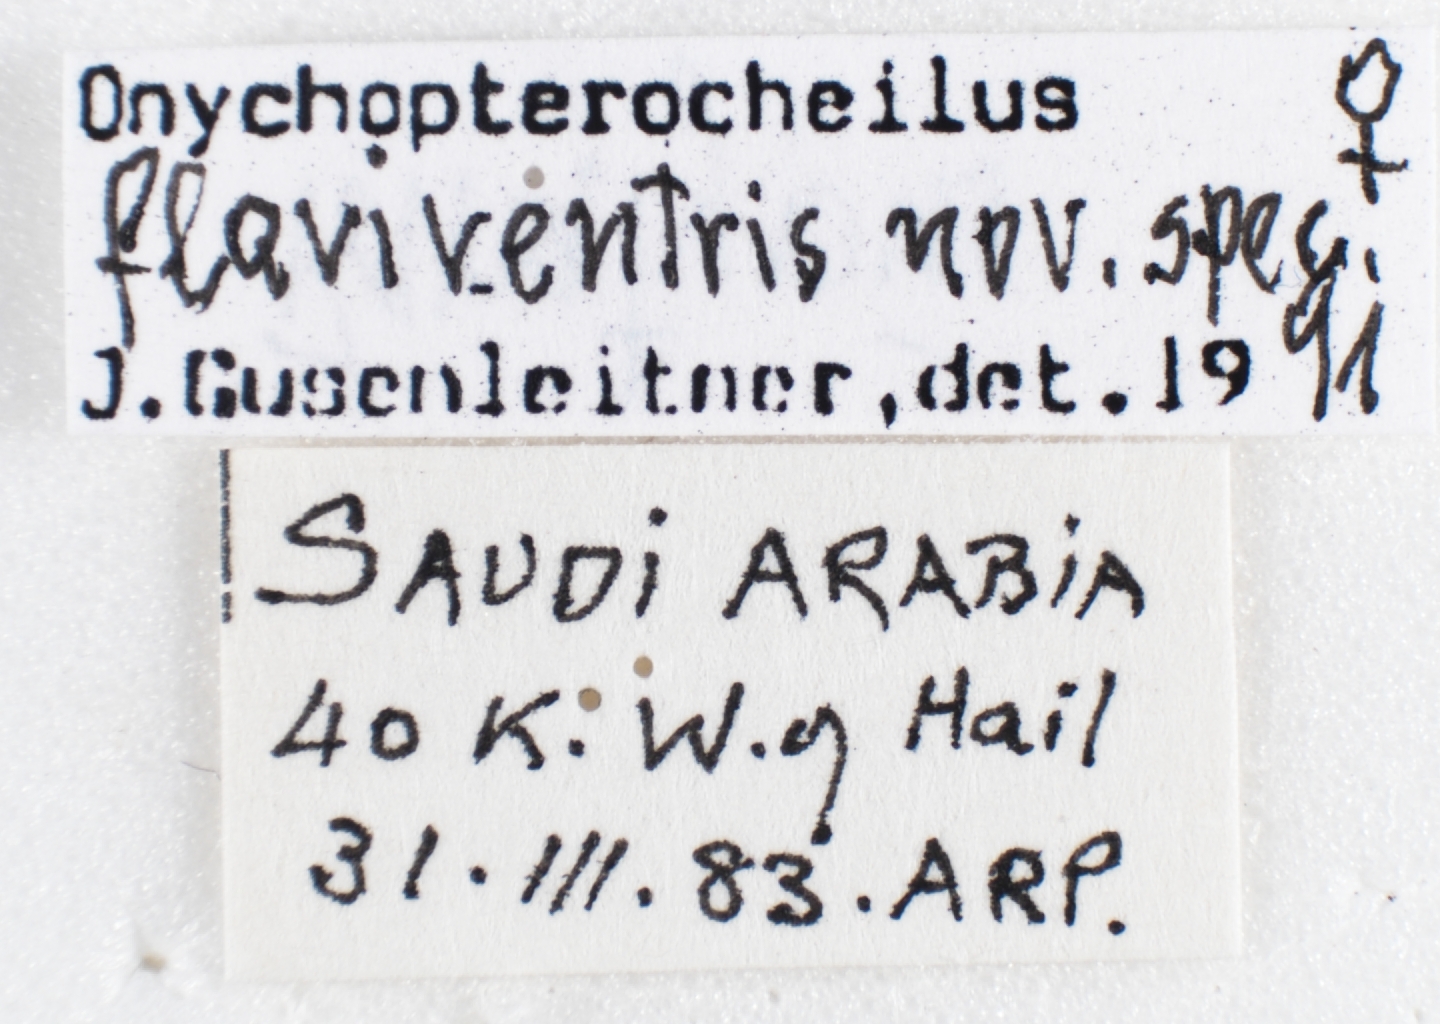 Onychopterocheilus ♀
flaviventris nov. spec.
J.Gusenleitner,det.19 91
SAUDi ARABiA
40 K. W. of Hail
31.III.83.ARP.